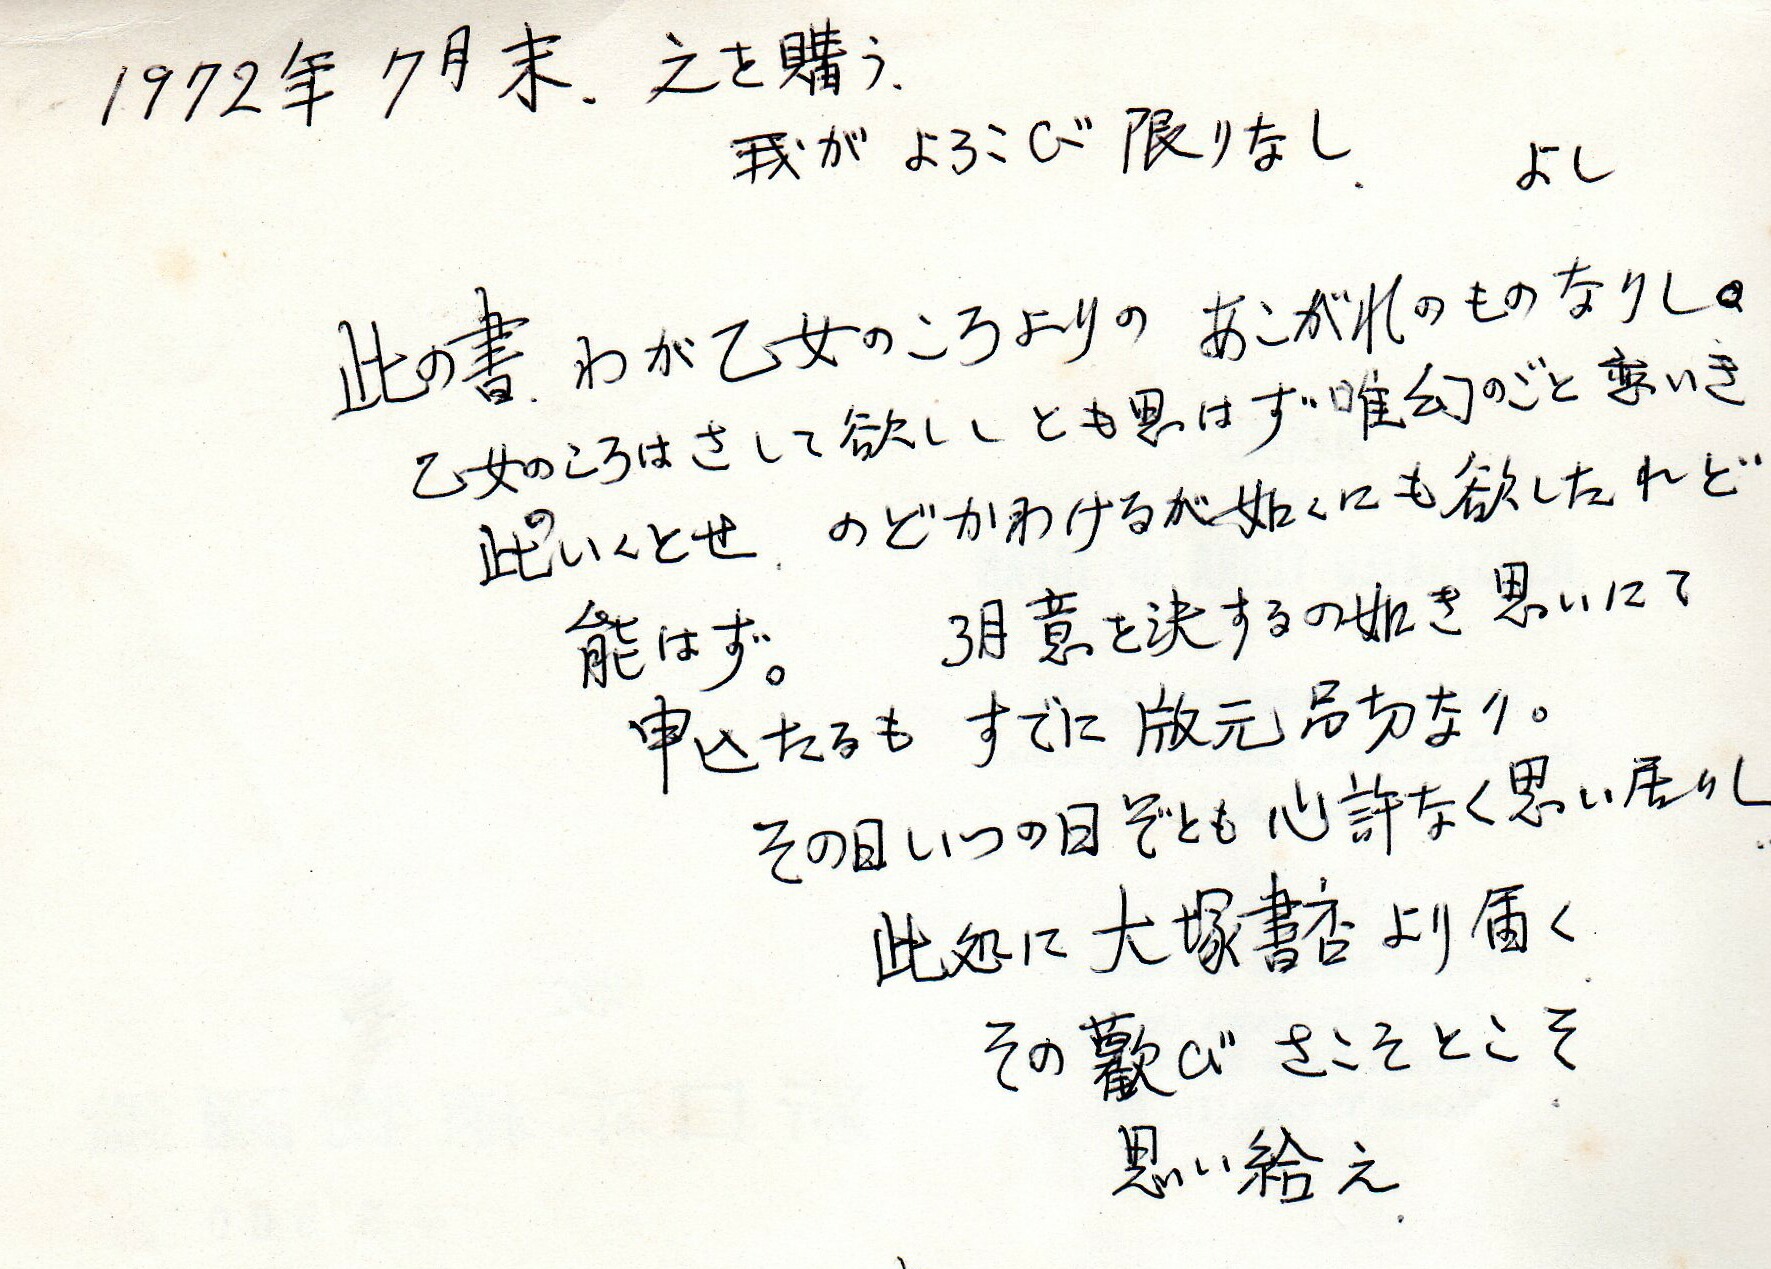 1972年 7月末. 之を購う.
我がよろこび限りなし. よし
此の書. わが乙女のころよりの あこがれのものなりし。
乙女のころはさして欲しし とも思はず 唯幻のごと恋いき
此のいくとせ. のどかわけるが如くにも欲したれど
能はず。 3月意を決するの如き思いにて
申込たるも すでに版元品切なり。
その日いつの日ぞとも 心許なく思い居りし.
此処に大塚書店より届く.
その歡び さこそとこそ.
思い給え.